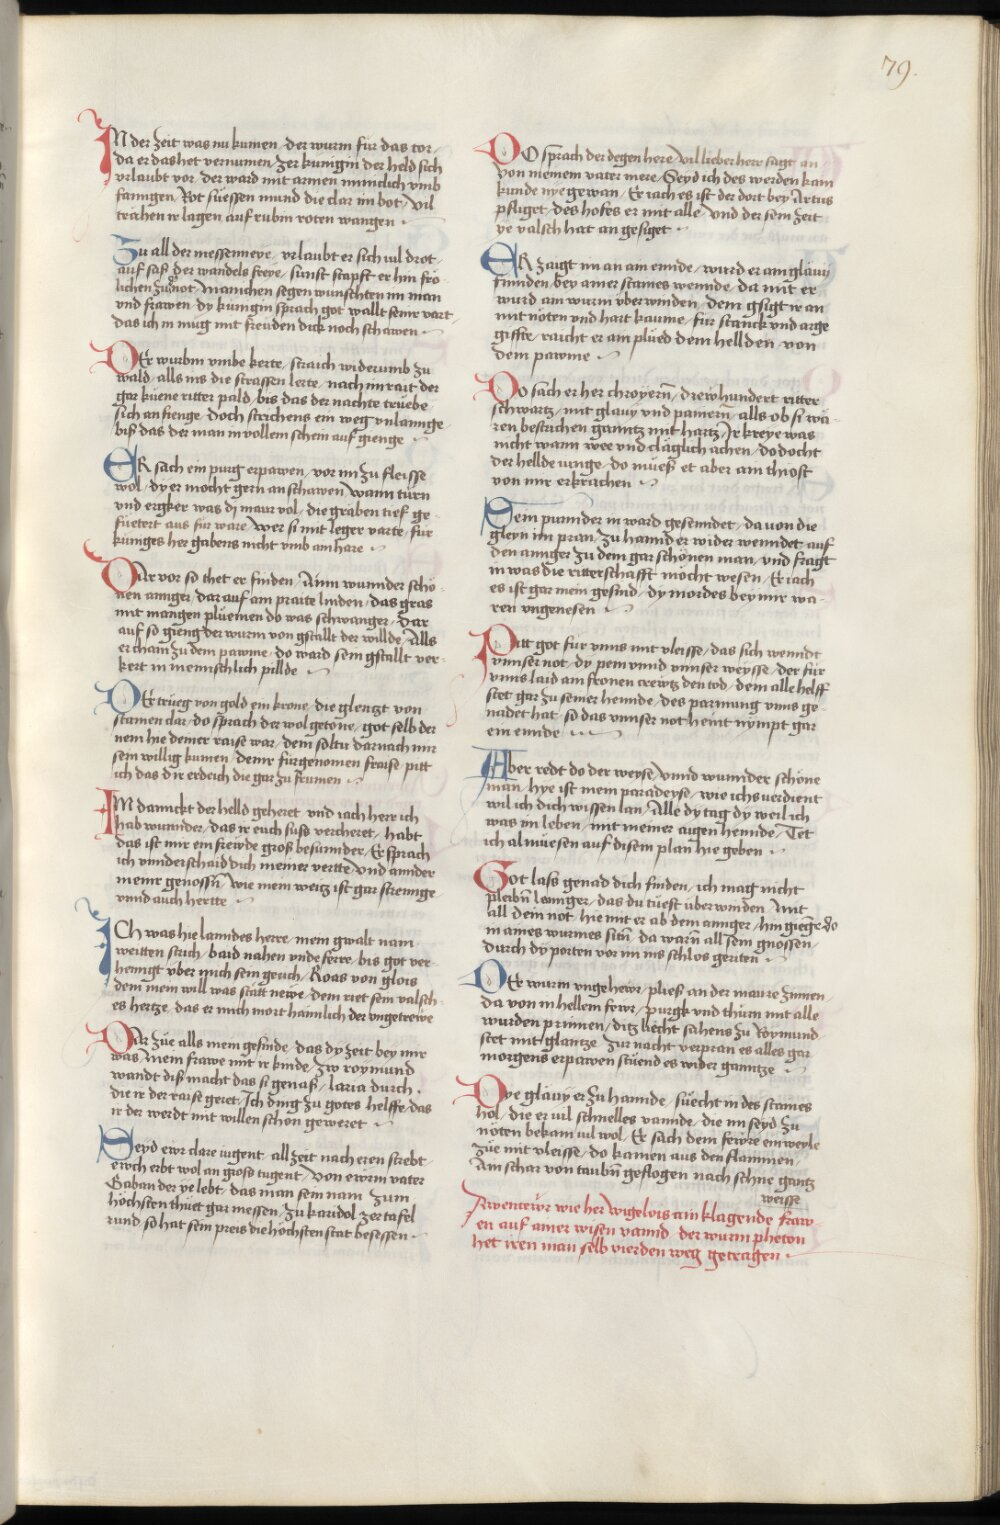 79.
IN der zeit was nu kumen / der wurm für das tor /
da er das het vernumen / zer kunigin der held sich
vrlaubt vor / der ward mit armen minniclich vmb
fangen / Rot süessen mund die clar im bot / vil
trehen ir lagen auf rubin roten wangen
Zu all der messenneye / vrlaubt er sich vil drot /
auf sass der wandels freye / sunst stapft er hin frö
lichen zu not / Manichen segen wunschten im man
vnd frawen / dy kunigin sprach got wallt seinr vart /
das ich in mug mit freuden dick noch schawen
DEr wurbm vmbe kerte / straich widerumb zu
wald / alls ins die strassen lerte / nach im rait der
gar kuene ritter pald / bis das der nachte truebe
sich an fienge / doch strichens ein weg vnlannge
bis das der man in vollem schein auf gienge
ER sach ein purg erpawen / vor im zu fleisse
wol / dy er mocht gern an schawen / wann türn
vnd ergker was dj maur vol / die graben tief ge
füetert aus für ware / wer si mit leger varte / für
kuniges her gabens nicht vmb ain hare
DAr vor so thet er finden / Ainn wunnder schö
nen annger / dar auf ain praite linden / das gras
mit mangen plüemen do was schwanger / dar
auf so gieng der wurm von gstallt der willde / Alls
er cham zu dem pawme / do ward sein gstallt ver
kert in mennschlich pillde
DEr trüeg von gold ein krone / die glenzt von
stainen clar / do sprach der wol getöne / got selb der
nem hie deiner raise war / dem soltu darnach mir
sein willig kumen / deinr fürgenomen fraise / pitt
ich das dir erdeich die gar zu frumen
IM dannckt der helld geheret / vnd iach herr ich
hab wunnder / das ir euch susst vercheret / habt
das ist mir ein freivde gross besunnder / Er sprach
ich vnnderschaid dich meiner vertte / vnd annder
meinr genossn̄ / wie mein weitz ist gar strennge
vnnd auch hertte
ICh was hie lanndes herre / mein gwalt nam
weitten strich / baid nahen vnde ferre / bis got ver
henngt vber mich sein gerich / Roas von glois
dem mein will was stätt newe / dem riet sein valsch
es hertze / das er mich mort haimlich der vngetrewe
DAr züe alls mein gesinde / das dy zeit bey mir
was / Mein frawe mit ir kinde / Zw roymund
wandt diss macht das si genass / laria durch
die ir der raise geret / Ich ding zu gotes helffe / das
ir der werdt mit willen schon geweret
Seyd ewr clare iugent / all zeit nach eren strebt /
ewch erbt wol an gross tugent / Von ewrm vater
Gaban der ye lebt / das man sein nam / zum
höchsten thuet gar messen / zu karidol zer tafel
rund / so hat sein preis die höchsten stat besessen
DO sprach der degen here / vil lieber herr sagt an
von meinem vater mere / Seyd ich des werden kain
kunde nye gewan / Er iach es ist der dort bey Artus
pfliget / des hofes er mit alle / vnd der sein zeit
ye valsch hat an gesiget
ER zaigt im an aim ennde / wurd er ain gläuy
finnden / bey ainer staines wennde / da mit er
wurd ain wurm vber winden / dem gsigt ir an
mit nöten vnd hart kaume / für stanck vnd arge
giffte / raicht er ain plued dem hellden von
dem pawme
DO sach er her chroyern̄ / drew hundert ritter
schwartz / mit glauy vnd panern̄ / alls ob si wä
ren bestrichen ganntz mit hartz / Ir kreye was
nicht wann wee vnd cläglich achen / do docht
der hellde iunge / do müess et aber ain thiost
von mir erkrachen
Sein punnder in ward gesenndet / da von die
gleyn im pran / zu hannd er wider wenndet auf
den annger zu dem gar schönen man / vnd fragt
in was die ritterschafft möcht wesen / Er iach
es ist gar mein gesind / dy mordes bey mir wa
ren vngenesen
Pitt got für vnns mit vleisse / das sich wenndt
vnnser not / dy pein vnnd vnnser weysse / der für
vnns laid am fronen crewtz den tod / dem alle helff
stet gar zu seiner hennde / des parmung vnns ge
nadet hat / so das vnnser not heint nympt gar
ein ennde
Aber redt do der weyse / vnnd wunnder schöne
man / hye ist mein paradeyse / wie ichs verdient
wil ich dich wissen lan / Alle dy tag dy weil ich
was im leben / mit meiner aigen hennde / Tet
ich almuesen auf disem plan hie geben
Got lass genad dich finden / ich mag nicht
pleibn̄ lennger / das du tüest überwinden / Mit
all dein not / hie mit er ab dem annger / hin gieng / do
in aines wurmes sitn̄ / da warn̄ all sein gnossen /
durch dy porten vor im ins schlos geriten
DEr wurm vngehewr / pliess an der maure zinnen /
da von in hellem fewr / purgk vnd thürn mit alle
wurden prinnen / ditz liecht sahens zu Roymund
stet mit glantze / Zur nacht verpran es alles gar
morgens erpawen stüend es wider ganntze
Dye gläuy er zu hannde / süecht in des staines
hol / die er vil schnelles vannde / die im seyd zu
nöten bekam vil wol / Er sach dem fewre ein weyle
züe mit vleisse / do kamen aus den flammen /
Ain schar von taubn̄ geflogen nach schne gantz
weisse
Awentewr wie her wigelois ain klagende fraw
en auf ainer wisen vannd / der wurm phetan
het iren man selb vierden weg getragen